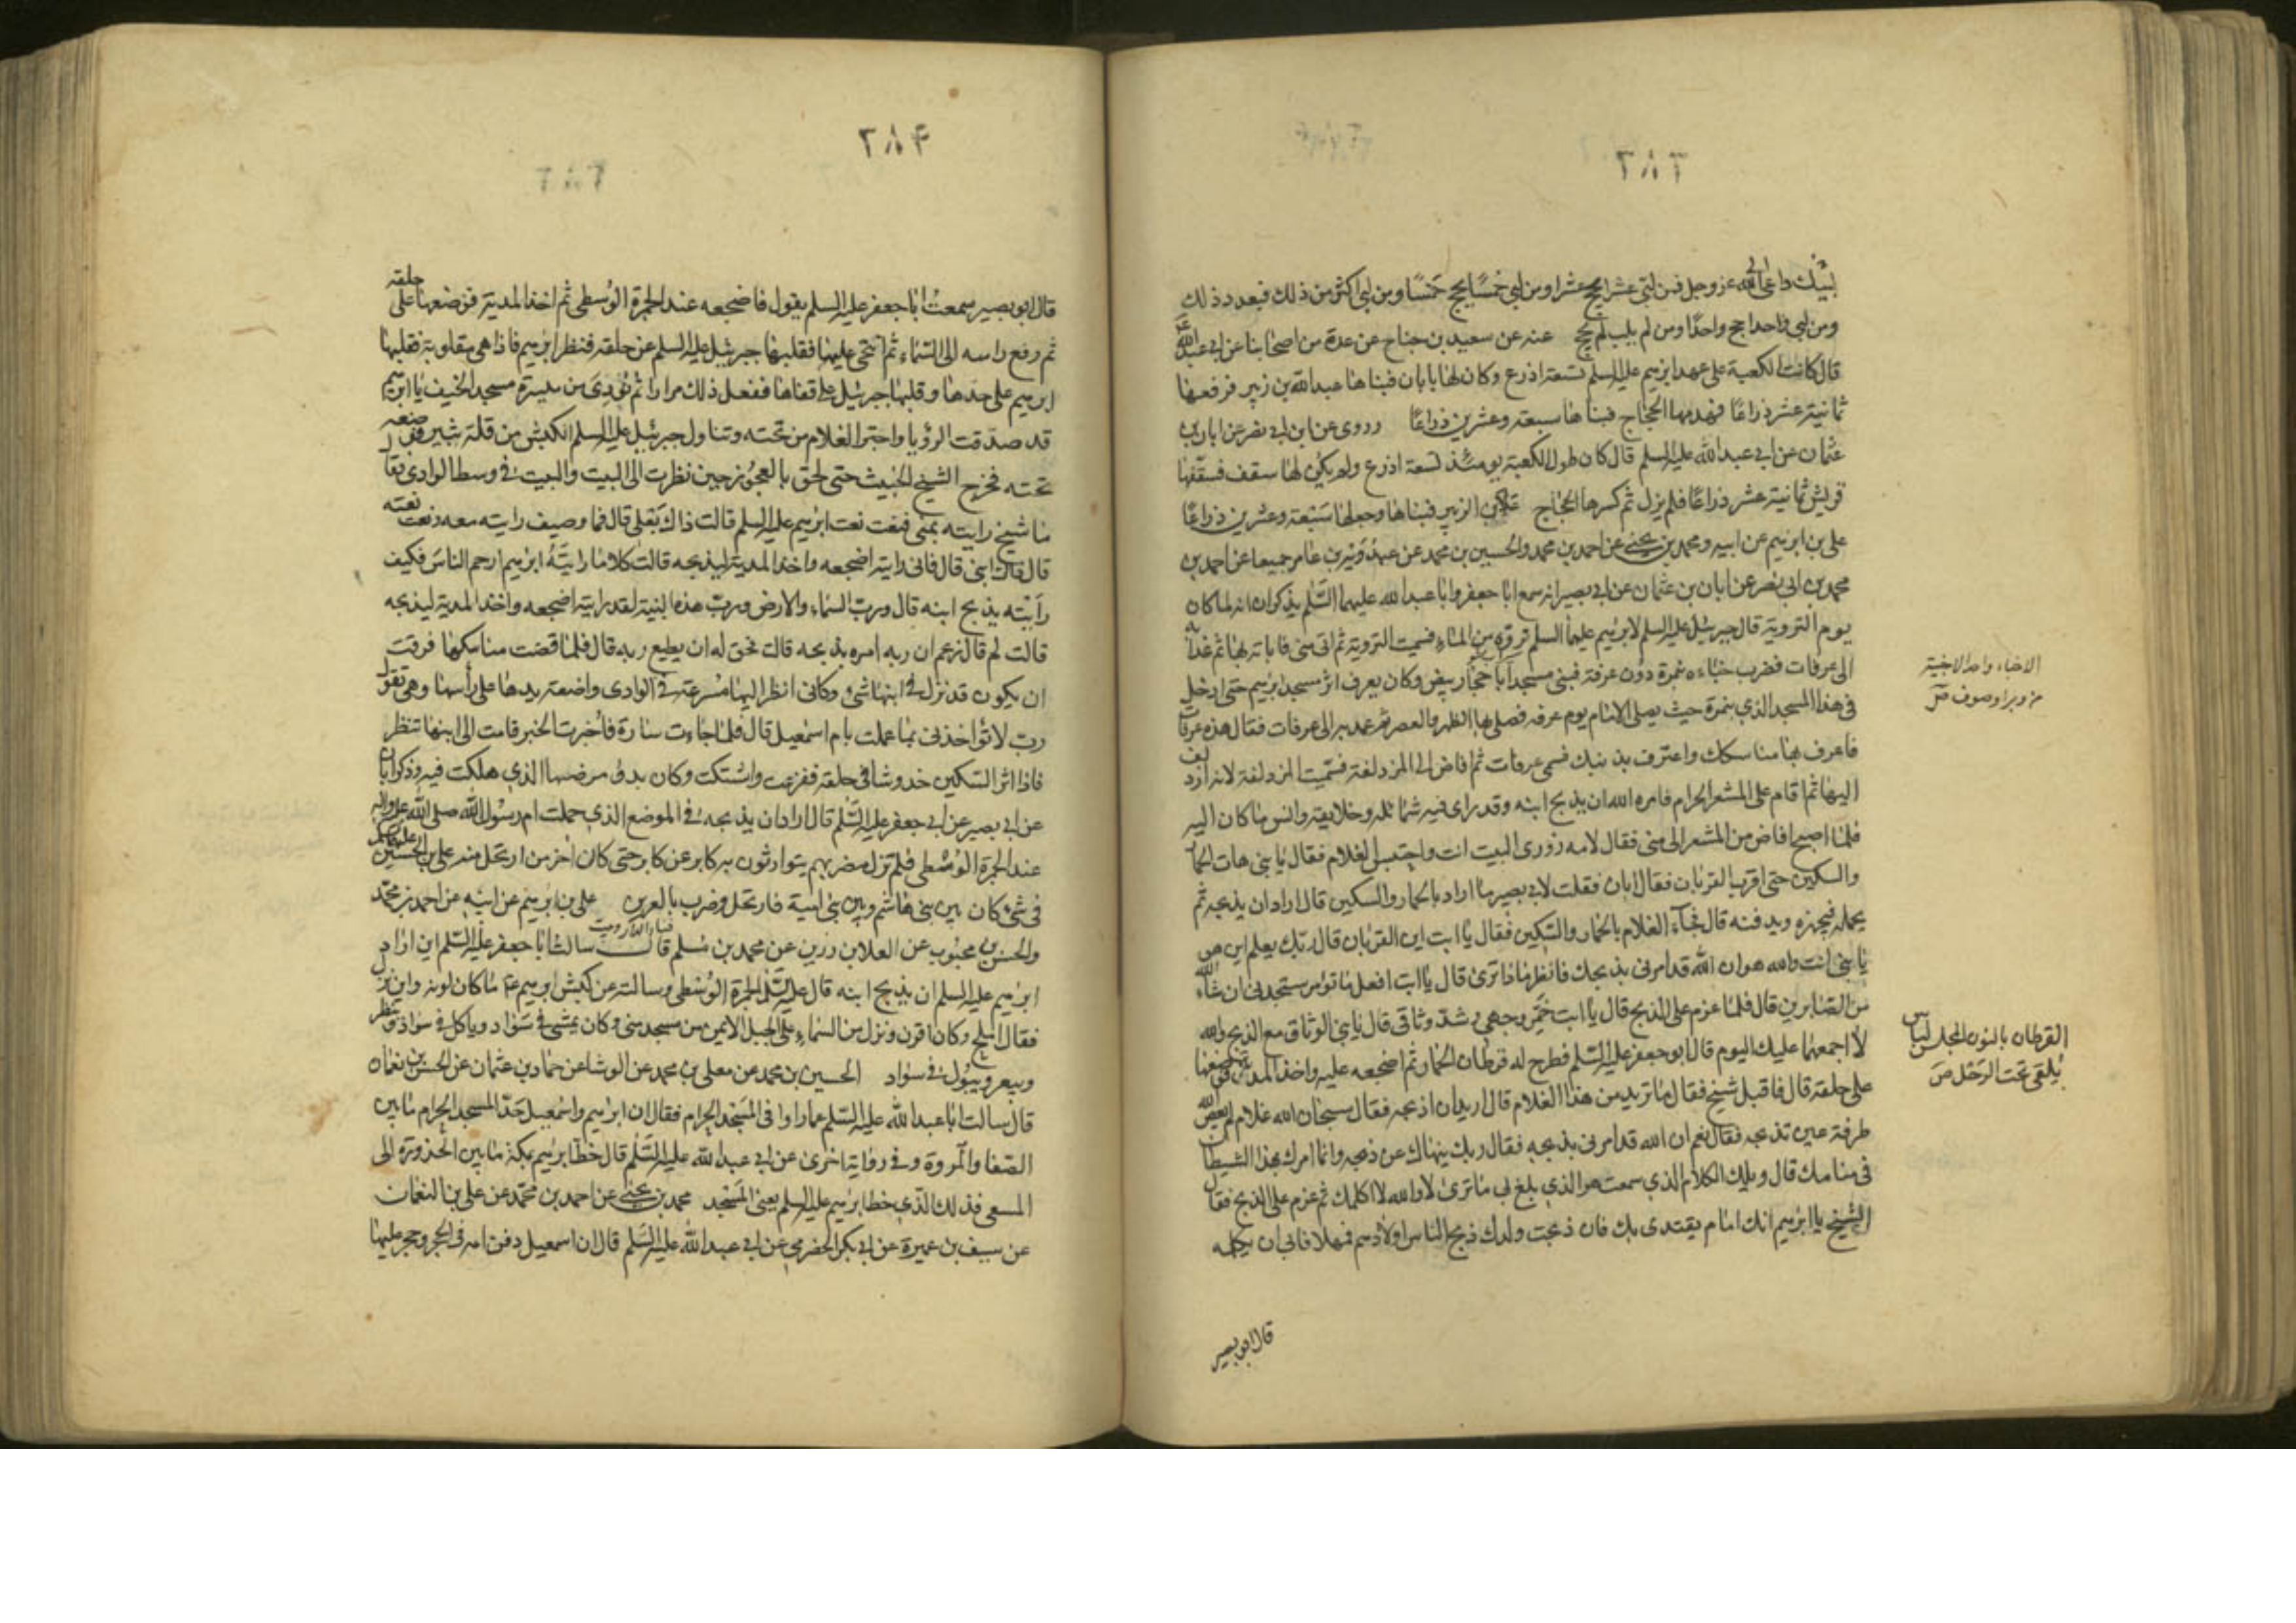 ٢٨٦
لبيك داعي الله عز وجل فمن لبى عشرا يحج عشرا ومن لبى خمسا يحج خمسا ومن لبى اكثر من ذلك فبعدد ذلك
ومن لبى واحدا حج واحدا ومن لم يلب لم يحج عنه عن سعيد بن جناح عن عدة من اصحابنا عن ابي عبد الله
قال كانت الكعبة على عهد ابرهيم عليه السلم تسعة اذرع وكان لها بابان فبناها عبد الله بن زبير فرفعها
ثمانية عشر ذراعا فهدمها الحجاج فبناها سبعة وعشرين ذراعا وروى عن ابن ابي نصر عن ابان بن
عثمان عن ابي عبد الله عليه السلم قال كان طول الكعبة يومئذ تسعة اذرع ولم يكن لها سقف فسقفها
قريش ثمانية عشر ذراعا فلم يزل ثم كسرها الحجاج على ابن الزبير فبناها وجعلها سبعة وعشرين ذراعا
على بن ابرهيم عن ابيه ومحمد بن يحيى عن احمد بن محمد والحسين بن محمد عن عبدويه بن عامر جميعا عن احمد بن
محمد بن ابي نصر عن ابان بن عثمان عن ابي بصير انه سمع ابا جعفر وابا عبد الله عليهما السلم يذكران انه لما كان
يوم التروية قال جبرئيل عليه السلم لابرهيم عليه السلم ترو من الماء فسميت التروية ثم اتى منى فاباته بها ثم غدا به
الى عرفات فضرب خباءه بنمرة دون عرفة فبنى مسجدا باحجار بيض وكان يعرف اثر مسجد ابرهيم حتى ادخل
في هذا المسجد الذي بنمرة حيث يصلى الامام يوم عرفه فصلى بها الظهر والعصر ثم عمد به الى عرفات فقال هذه عرفات
فاعرف بها مناسكك واعترف بذنبك فسمى عرفات ثم افاض الى المزدلفة فسميت المزدلفة لانه ازدلف
اليها ثم اقام على المشعر الحرام فامره الله ان يذبح ابنه وقد راى فيه شمائله وخلايقه وانس ما كان اليه
فلما اصبح افاض من المشعر الى منى فقال لامه زورى البيت انت واحتبس الغلام فقال يا بنى هات الحمار
والسكين حتى اقرب القربان فقال ابان فقلت لابي بصير ما اراد بالحمار والسكين قال اراد ان يذبحه ثم
يحمله فيجهزه ويدفنه قال فجاء الغلام بالحمار والسكين فقال يا ابت اين القربان قال ربك يعلم اين هو
يا بنى انت والله هو ان الله قد امرنى بذبحك فانظر ماذا ترى قال يا ابت افعل ما تؤمر ستجدنى ان شاء الله
من الصابرين قال فلما عزم على الذبح قال يا ابت خمر وجهى وشد وثاقى قال يا بنى الوثاق مع الذبح والله
لا اجمعهما عليك اليوم قال ابو جعفر عليه السلم فطرح له قرطان الحمار ثم اضجعه عليه واخذ المدية فوضعها
على حلقه قال فاقبل شيخ فقال ما تريد من هذا الغلام قال اريد ان اذبحه فقال سبحان الله غلام لم يعص الله
طرفة عين تذبحه فقال نعم ان الله قد امرنى بذبحه فقال ربك ينهاك عن ذبحه وانما امرك بهذا الشيطان
في منامك قال ويلك الكلام الذي سمعت هو الذي بلغ بى ما ترى لا والله لا اكلمك ثم عزم على الذبح فقال
الشيخ يا ابرهيم انك امام يقتدى بك فان ذبحت ولدك ذبح الناس اولادهم فمهلا فابى ان يكلمه
قال ابو بصير
الاخباء واحد الاخبية
من وبر او صوف ص
القرطان بالنون المجلس لباس
يلقى تحت الرحل ص
٢٨٧
قال ابو بصير سمعت ابا جعفر عليه السلم يقول فاضجعه عند الجمرة الوسطى ثم اخذ المدية فوضعها على حلقه
ثم رفع راسه الى السماء ثم انتحى عليها فقلبها جبرئيل عليه السلم عن حلقه فنظر ابرهيم فاذا هى مقلوبة فقلبها
ابرهيم على حدها وقلبها جبرئيل على قفاها ففعل ذلك مرارا ثم نودى من ميسرة مسجد الخيف يا ابرهيم
قد صدقت الرؤيا واجتر الغلام من تحته وتناول جبرئيل عليه السلم الكبش من قلة ثبير فوضعه
تحته فخرج الشيخ الخبيث حتى لحق بالعجوز حين نظرت الى البيت والبيت في وسط الوادى فقال
ما شيخ رايته بمنى فنعت نعت ابرهيم عليه السلم قالت ذاك بعلى قال فما وصيف رايته معه ونعت نعته
قالت ذاك ابنى قال فانى رايته اضجعه واخذ المدية ليذبحه قالت كلا ما رايته ابرهيم ارحم الناس فكيف
رأيته يذبح ابنه قال ورب السماء والارض ورب هذه البنية لقد رايته اضجعه واخذ المدية ليذبحه
قالت لم قال زعم ان ربه امره بذبحه قالت فحق له ان يطيع ربه قال فلما قضت مناسكها فرقت
ان يكون قد نزل في ابنها شئ وكانى انظر اليها مسرعة في الوادى واضعة يدها على رأسها وهى تقول
رب لا تؤاخذنى بما عملت بام اسمعيل قال فلما جاءت سارة فأخبرت الخبر قامت الى ابنها تنظر
فاذا اثر السكين خدوشا في حلقه ففزعت واشتكت وكان بدو مرضها الذي هلكت فيه وذكر ابان
عن ابي بصير عن ابي جعفر عليه السلم قال اراد ان يذبحه في الموضع الذي حملت ام رسول الله صلى الله عليه واله
عند الجمرة الوسطى فلم تزل مضربهم يتوارثون به كابر عن كابر حتى كان اخر من ارتحل منه على بن الحسين عليهما السلم
في شئ كان بين بنى هاشم وبين بنى امية فارتحل وضرب بالعرين على بن ابرهيم عن ابيه عن احمد بن محمد
والحسن بن محبوب عن العلا بن رزين عن محمد بن مسلم قال سالت ابا جعفر عليه السلم اين اراد
ابرهيم عليه السلم ان يذبح ابنه قال على الجمرة الوسطى وسالته عن كبش ابرهيم ما كان لونه واين نزل
فقال املح وكان اقرن ونزل من السماء على الجبل الايمن من مسجد منى وكان يمشى في سواد وياكل في سواد وينظر
ويبعر ويبول في سواد الحسين بن محمد عن معلى بن محمد عن الوشا عن حماد بن عثمان عن الحسن بن نعمان
قال سالت ابا عبد الله عليه السلم عما زادوا في المسجد الحرام فقال ان ابرهيم واسمعيل حدا المسجد الحرام ما بين
الصفا والمروة وفي رواية اخرى عن ابي عبد الله عليه السلم قال خط ابرهيم بمكة ما بين الحزورة الى
المسعى فذلك الذي خط ابرهيم عليه السلم يعنى المسجد محمد بن يحيى عن احمد بن محمد عن على بن النعمان
عن سيف بن عميرة عن ابي بكر الحضرمي عن ابي عبد الله عليه السلم قال ان اسمعيل دفن امه في الحجر وحجر عليها